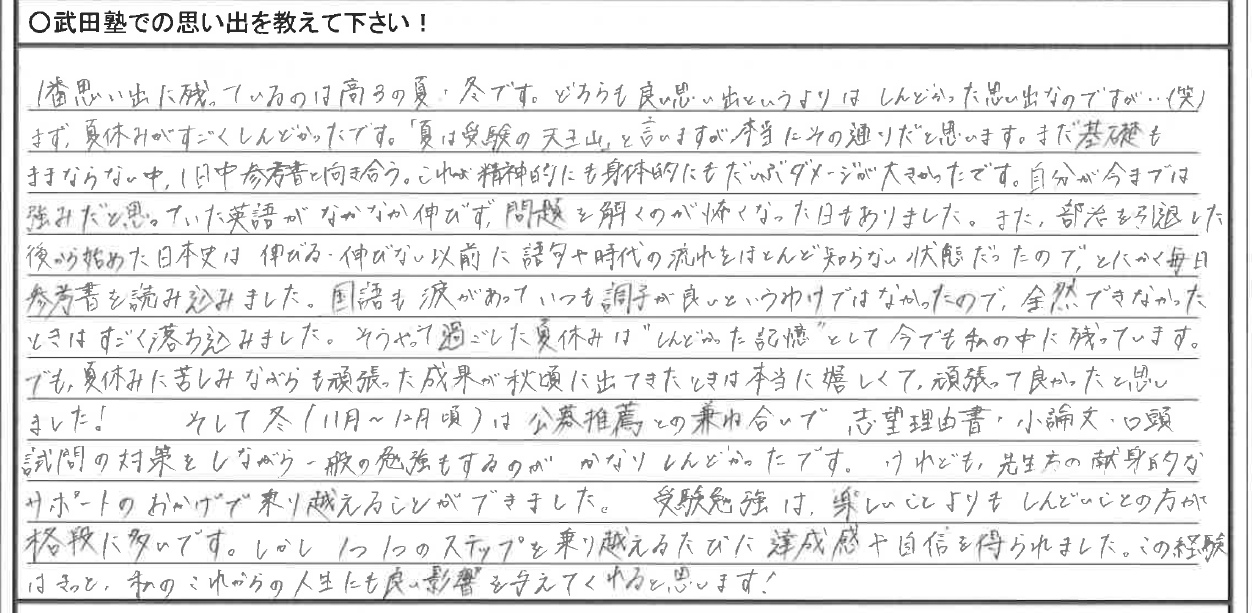 〇武田塾での思い出を教えて下さい！
1番思い出に残っているのは高3の夏・冬です。どちらも良い思い出というよりは しんどかった思い出なのですが…(笑)
まず、夏休みがすごくしんどかったです。「夏は受験の天王山」と言いますが本当にその通りだと思います。まだ基礎も
ままならない中、1日中参考書と向き合う。これが精神的にも身体的にもだいぶダメージが大きかったです。自分が今までは
強みだと思っていた英語がなかなか伸びず、問題を解くのが怖くなった日もありました。また、部活を引退した
後から始めた日本史は 伸びる・伸びない以前に語句や時代の流れをほとんど知らない状態だったので、とにかく毎日
参考書を読み込みました。国語も波があっていつも調子が良いというわけではなかったので、全然できなかった
ときはすごく落ち込みました。そうやって過ごした夏休みは"しんどかった記憶"として今でも私の中に残っています。
でも、夏休みに苦しみながらも頑張った成果が秋頃に出てきたときは本当に嬉しくて、頑張って良かったと思い
ました！ そして冬(11月～12月頃)は公募推薦との兼ね合いで 志望理由書・小論文・口頭
試問の対策をしながら一般の勉強もするのが かなりしんどかったです。けれども、先生方の献身的な
サポートのおかげで乗り越えることができました。 受験勉強は、楽しいことよりもしんどいことの方が
格段に多いです。しかし 1つ1つのステップを乗り越えるたびに 達成感や自信を得られました。この経験
はきっと、私のこれからの人生にも良い影響を与えてくれると思います！